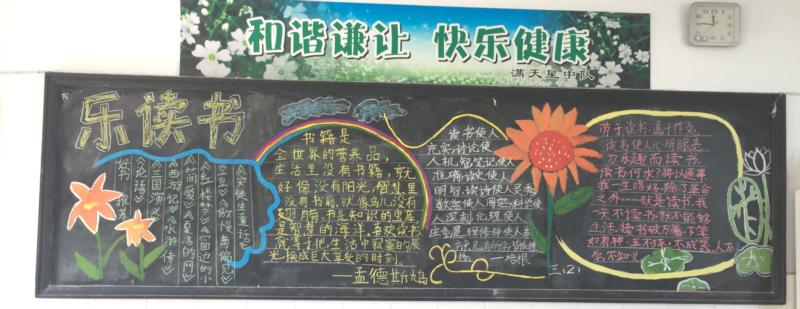 和谐谦让 快乐健康
满天星中队
乐读书
好书
推荐
《论语》
《三国演义》
《西游记》《水浒传》
《简爱》《夏洛的网》
《红楼梦》《窗边的小
豆豆》《傲慢与偏见》
《安徒生童话》
书籍是
全世界的营养品,
生活里没有书籍,就
好像没有阳光,智慧里
没有书籍,就像鸟儿没有
翅膀,书是知识的宝库
是智慧的海洋,喜欢读书
就等于把生活中寂寞的辰
光换成巨大享受的时刻
——孟德斯鸠
读书使人
充实,讨论使
人机智,笔记使人
准确,读史使人
明智,读诗使人灵秀
数学使人周密,科学使
人深刻,伦理使人
庄重,逻辑修辞使人善
——培根
三(2)
劳于读书,逸于作文。
读书使人心明眼亮。
为乐趣而读书。
读书何求?将以通事
我一生嗜好,除了革命
之外——就是读书,我
一天不读书,就不能够
生活。读书破万卷,下笔
如有神。玉不琢,不成器,人不
学,不知义。